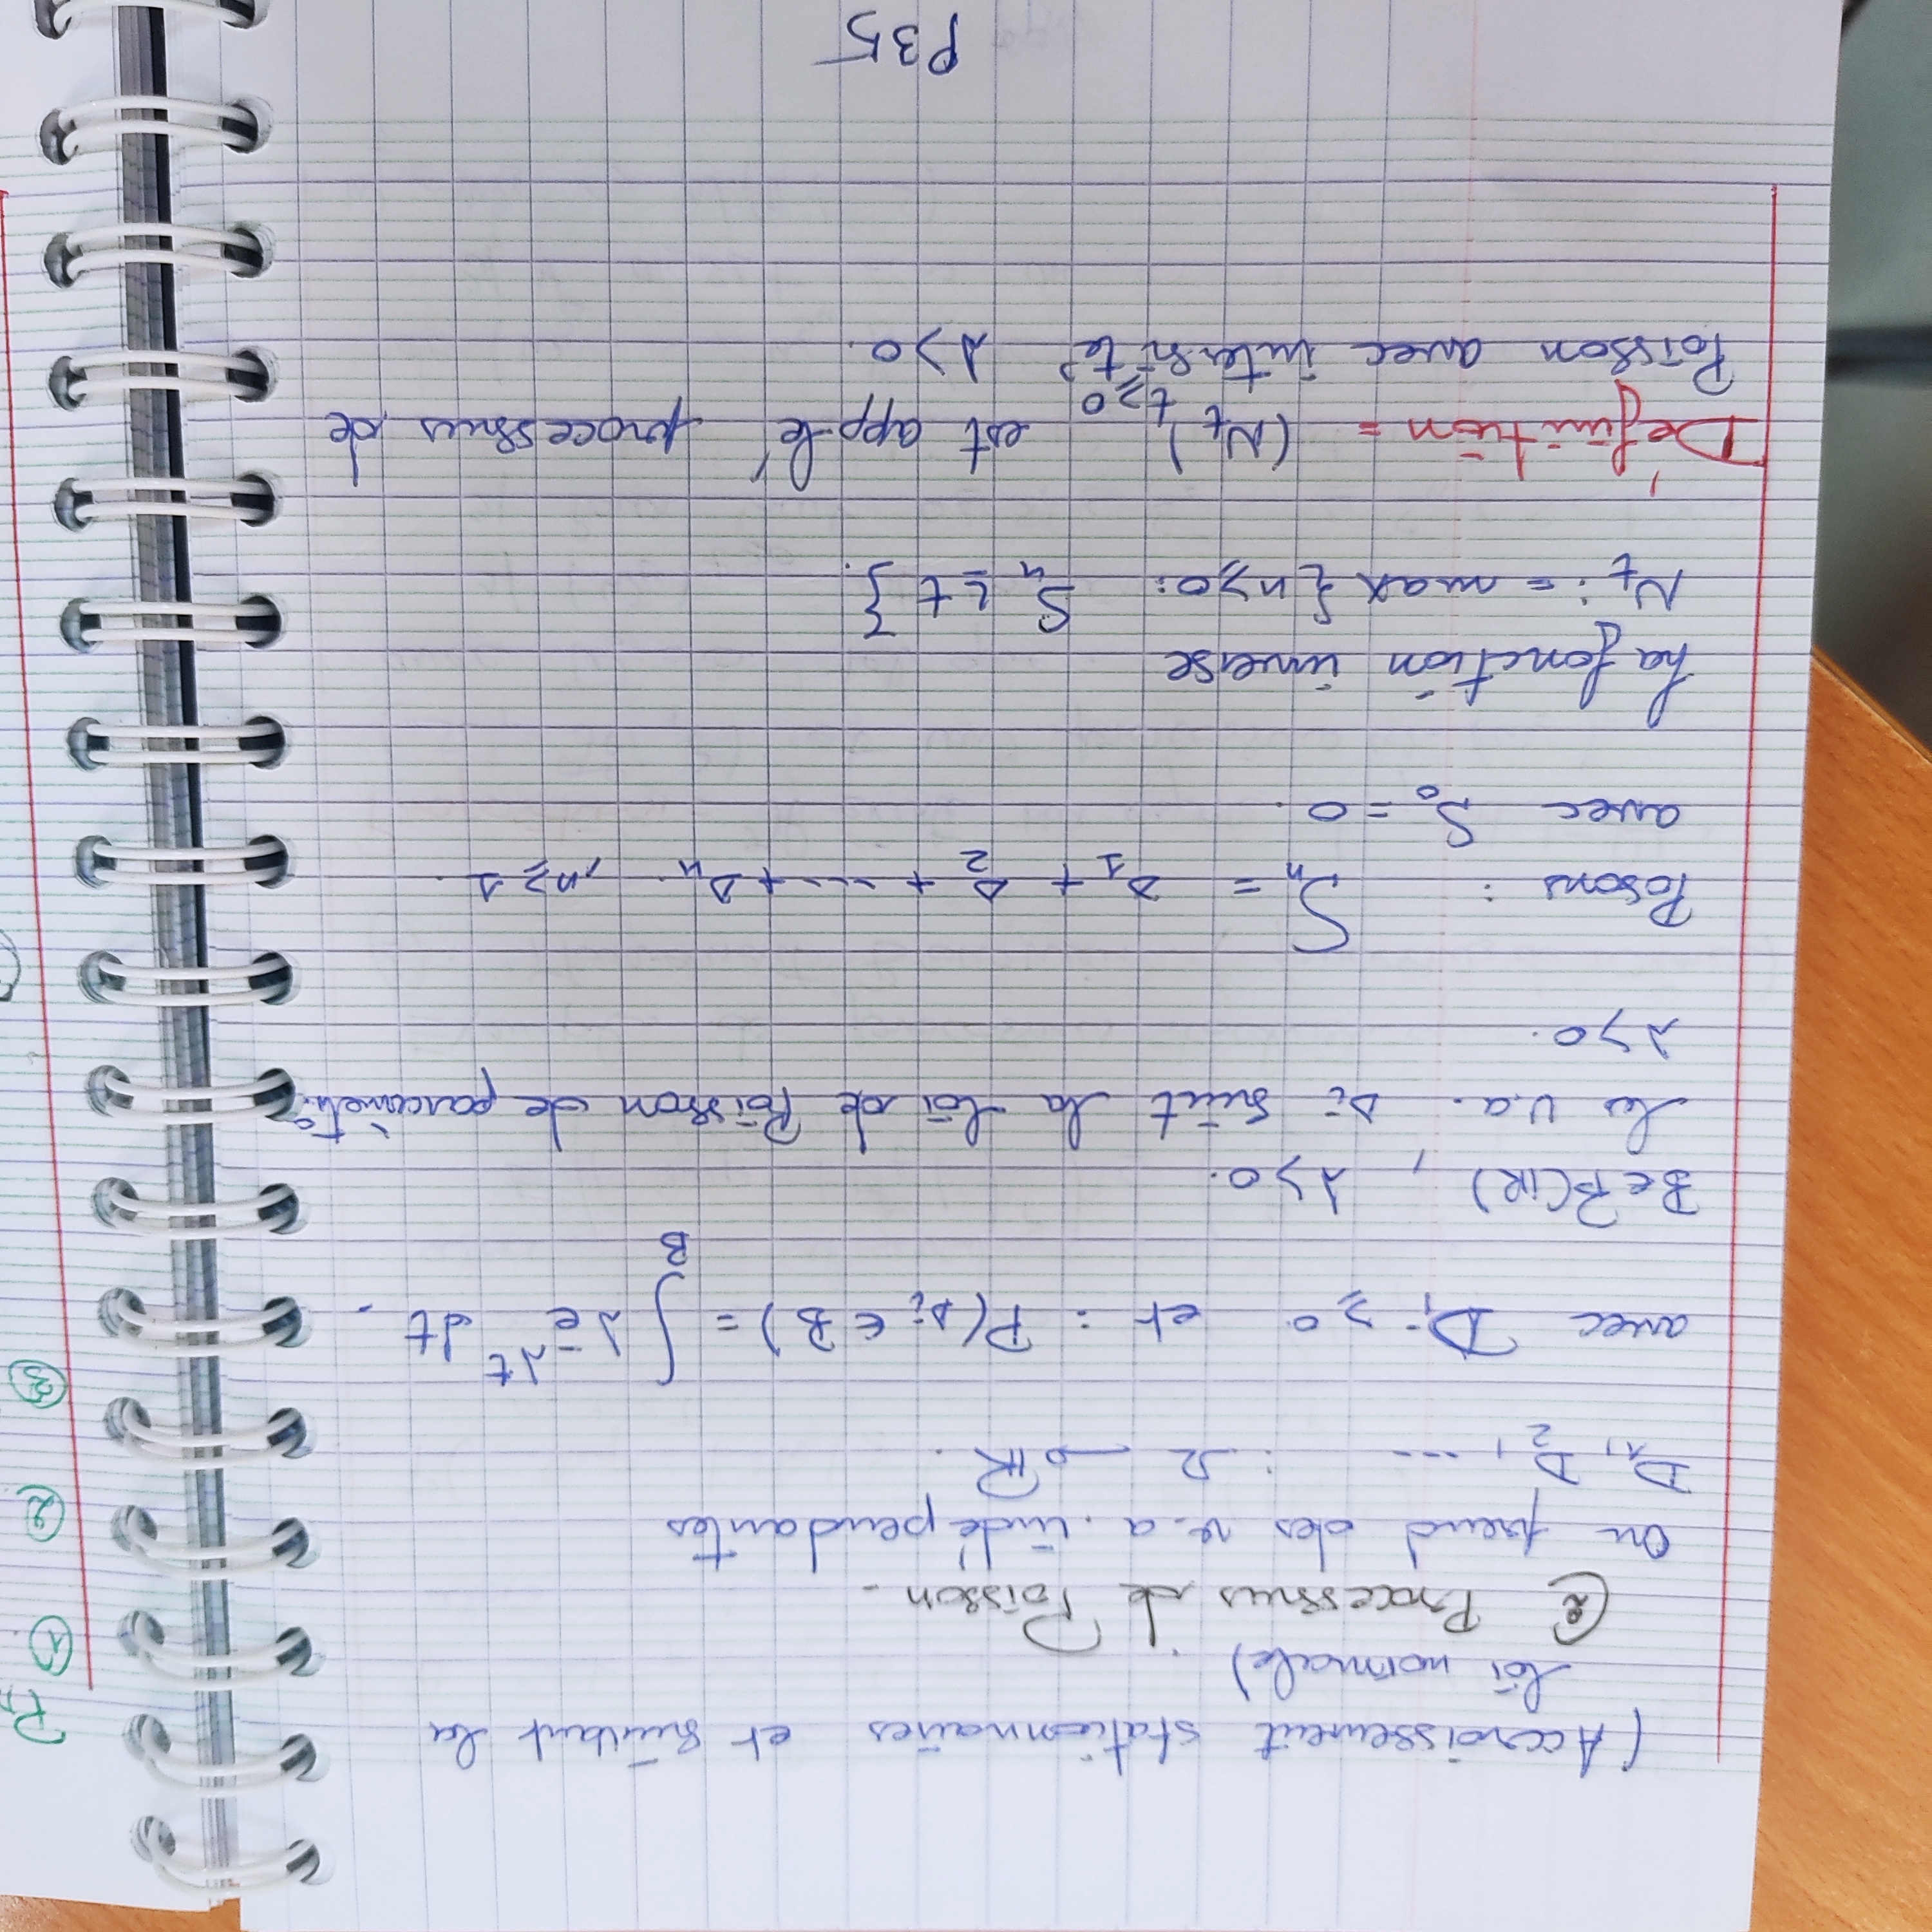 (Accroissement stationnaires et suivant la
loi normale).
② Processus de Poisson.
On prend des v.a. indépendantes
D₁, D₂, ... : Ω → ℝ.
avec Dᵢ ≥ 0 et : P(Dᵢ ∈ B) = ∫_B λ e^{-λt} dt.
B ∈ B(ℝ), λ > 0.
les v.a. Dᵢ suit la loi de Poisson de paramètre
λ > 0.
Posons : Sₙ = D₁ + D₂ + ... + Dₙ , n ≥ 1.
avec S₀ = 0.
La fonction inverse
Nₜ := max {n ≥ 0 : Sₙ ≤ t}.
Définition = (Nₜ)_{t≥0} est applé processus de
Poisson avec intensité λ > 0.
P35
①
②
③